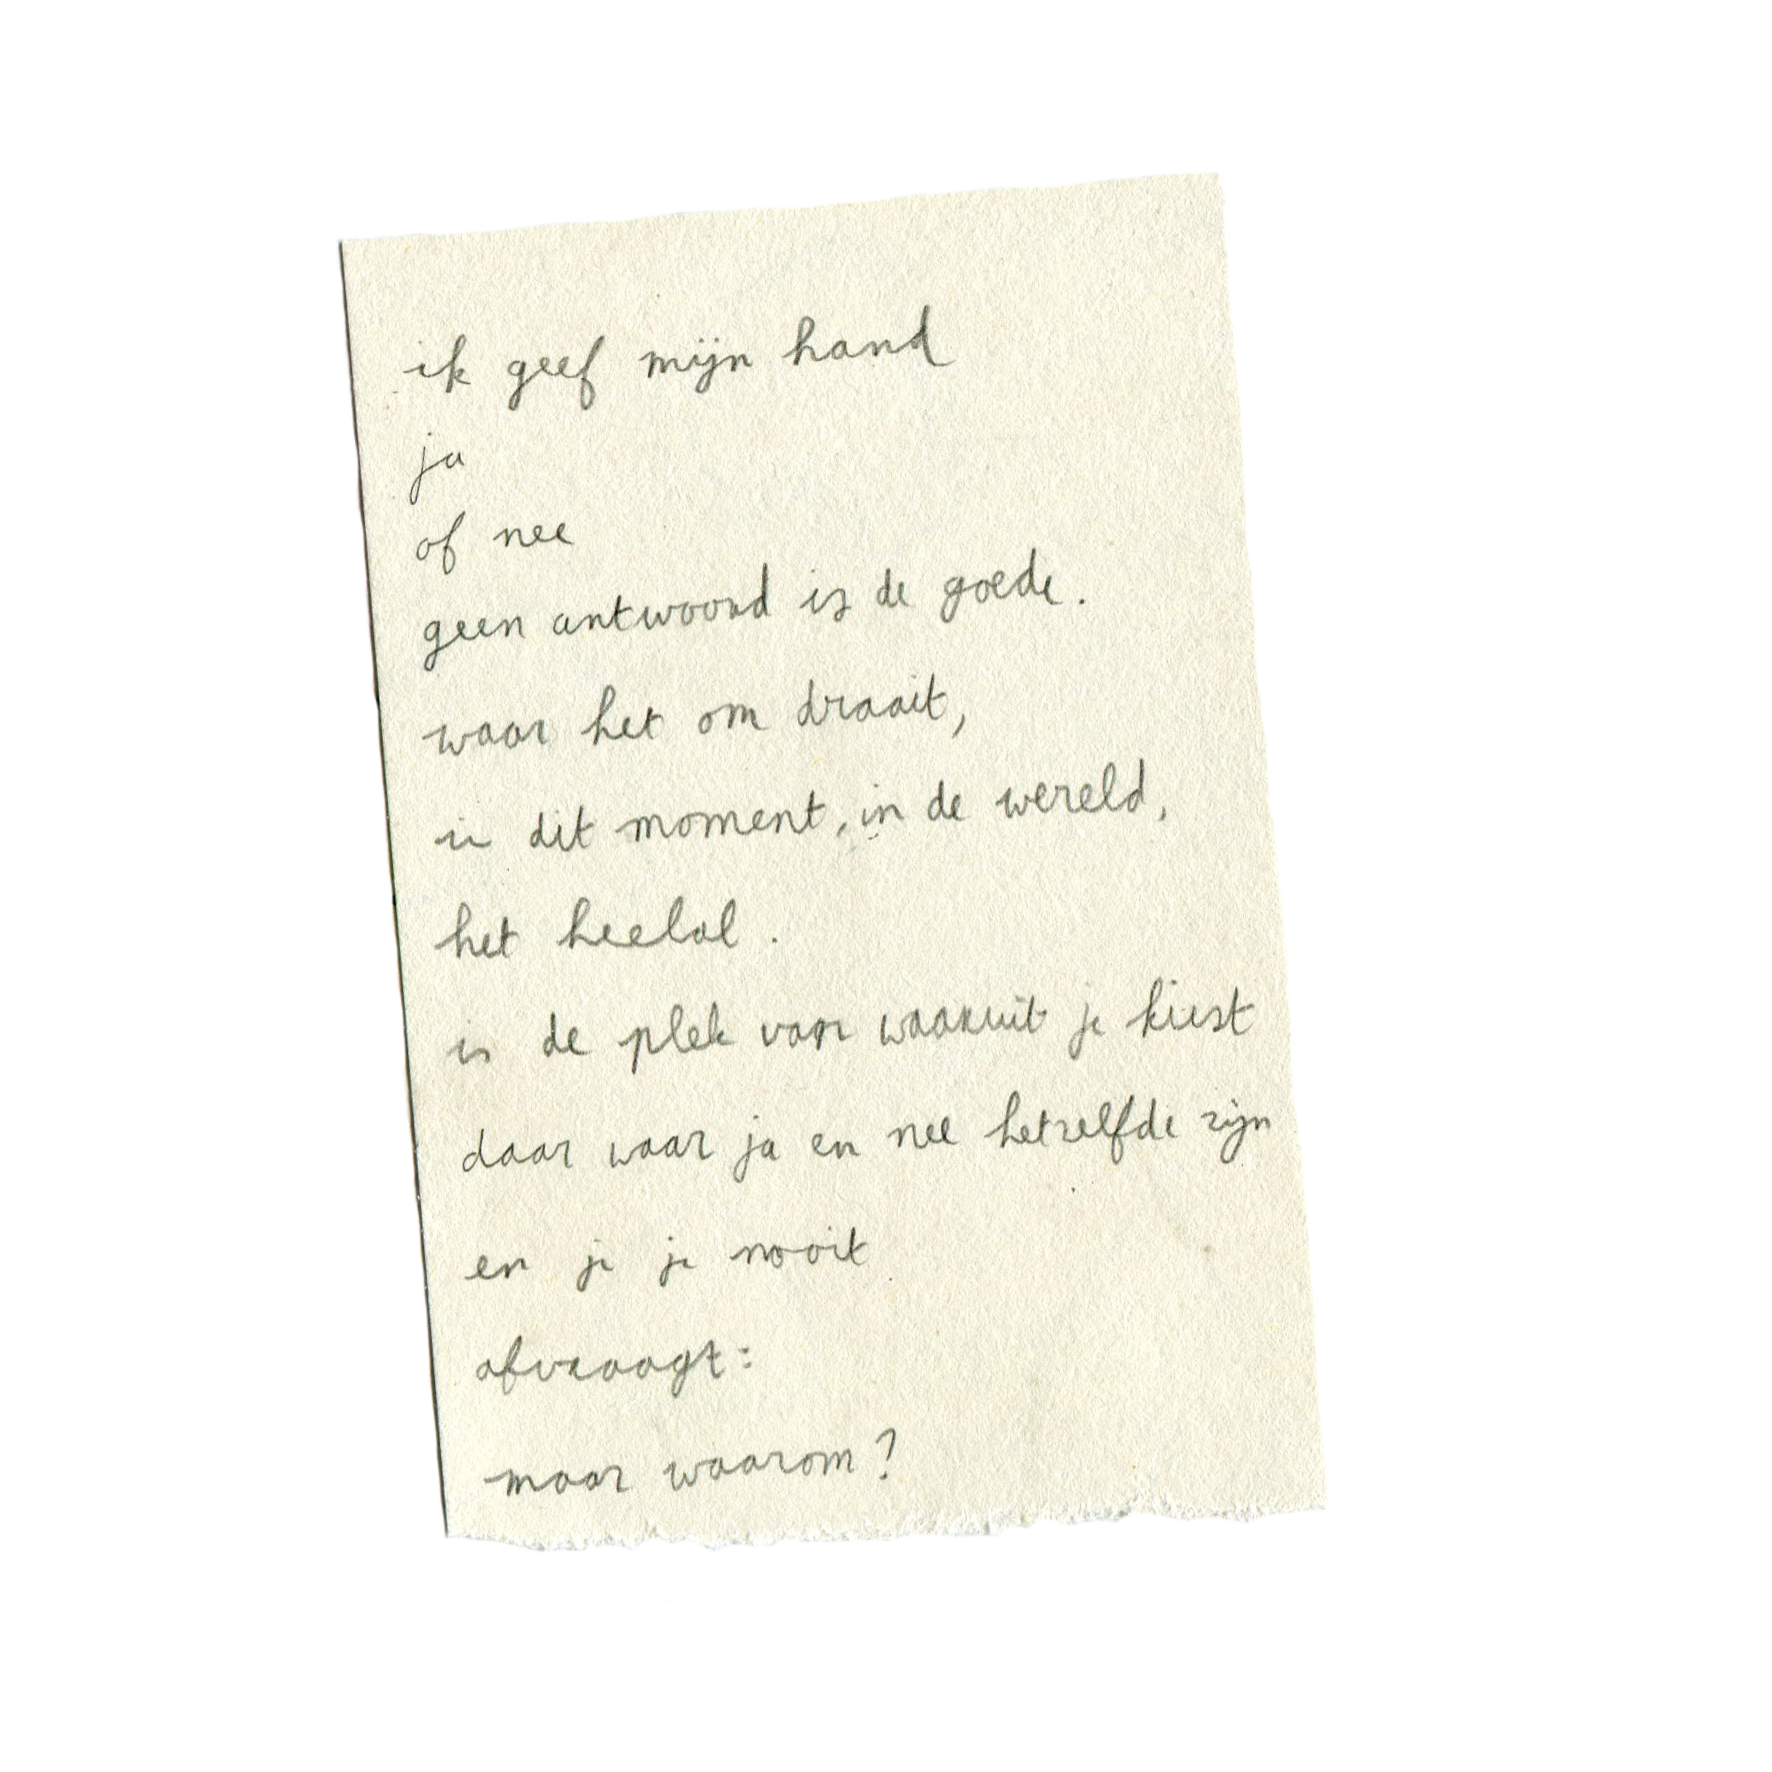 ik geef mijn hand
ja
of nee
geen antwoord is de goede.
waar het om draait,
in dit moment, in de wereld,
het heelal.
is de plek van waaruit je kiest
daar waar ja en nee hetzelfde zijn
en je je nooit
afvraagt:
maar waarom?